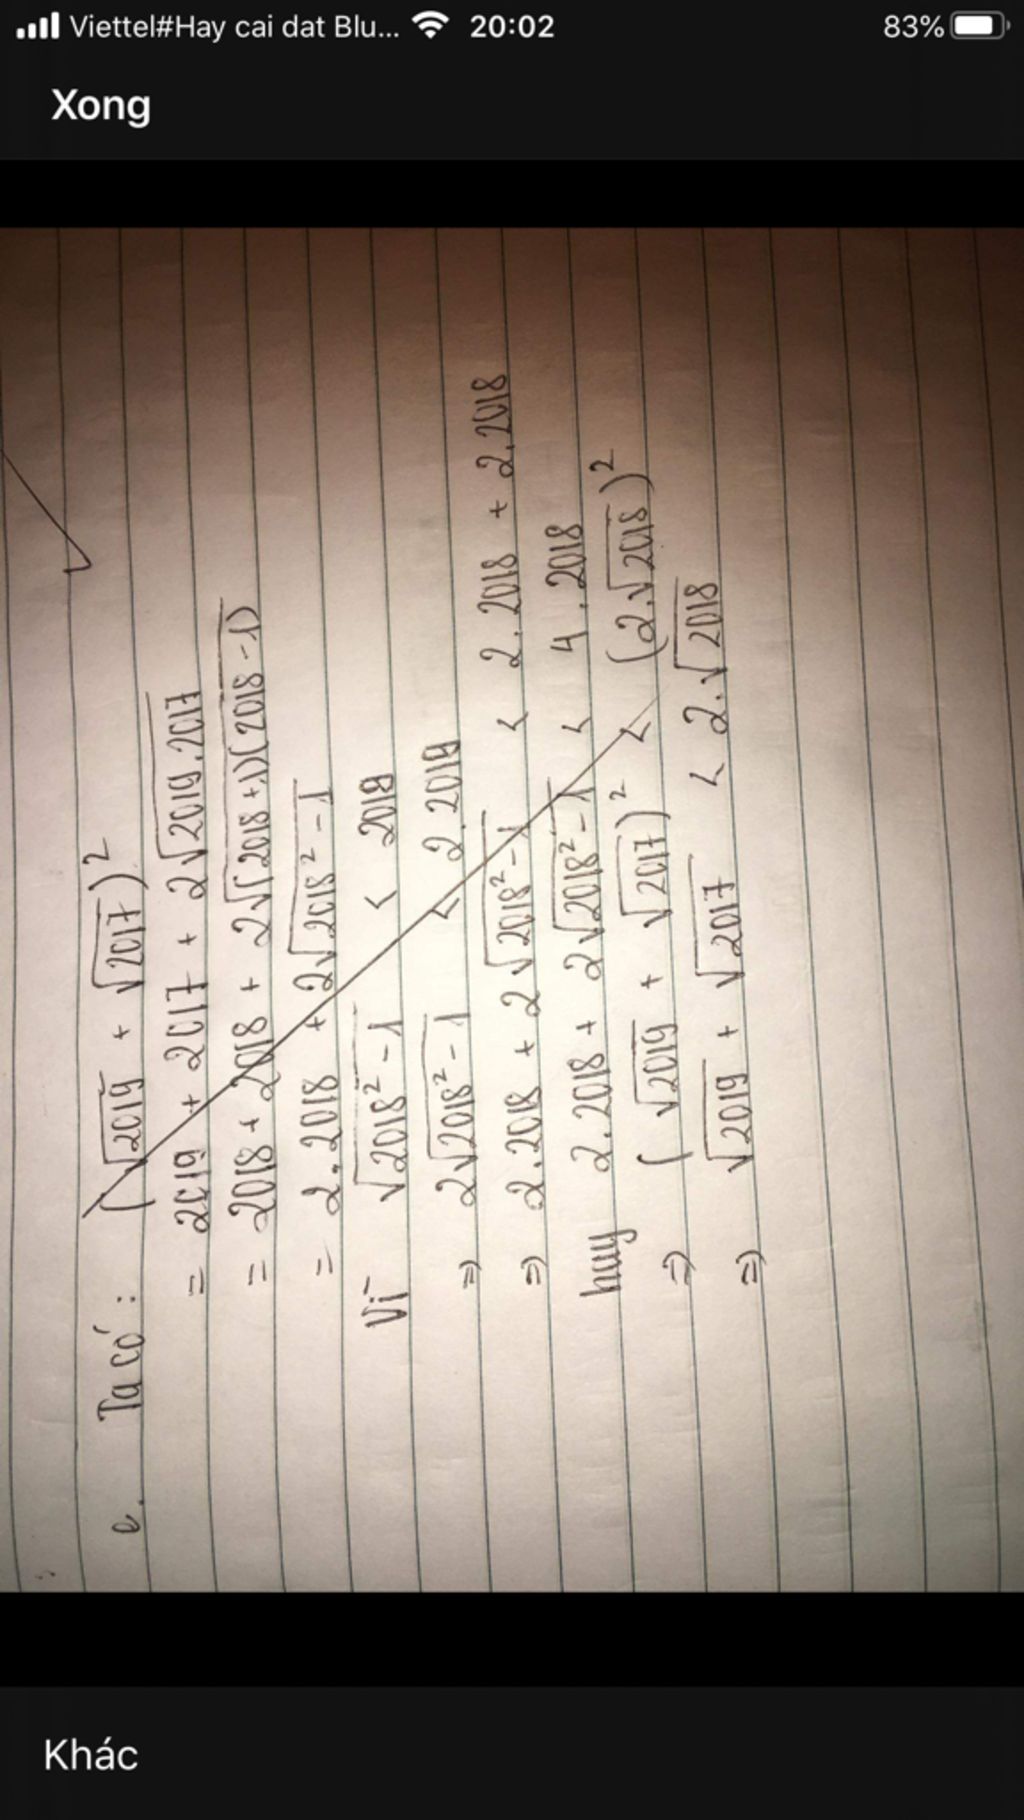 Viettel#Hay cai dat Blu... 20:02 83%
Xong
e. Ta có: (√2019 + √2017)²
= 2019 + 2017 + 2√2019.2017
= 2018 + 2018 + 2√(2018+1)(2018-1)
= 2.2018 + 2√2018² - 1
Vì √2018² - 1 < 2018
=) 2√2018² - 1 < 2.2018
=) 2.2018 + 2√2018² - 1 < 2.2018 + 2.2018
hay 2.2018 + 2√2018² - 1 < 4.2018
=) (√2019 + √2017)² < (2.√2018)²
=) √2019 + √2017 < 2.√2018
Khác